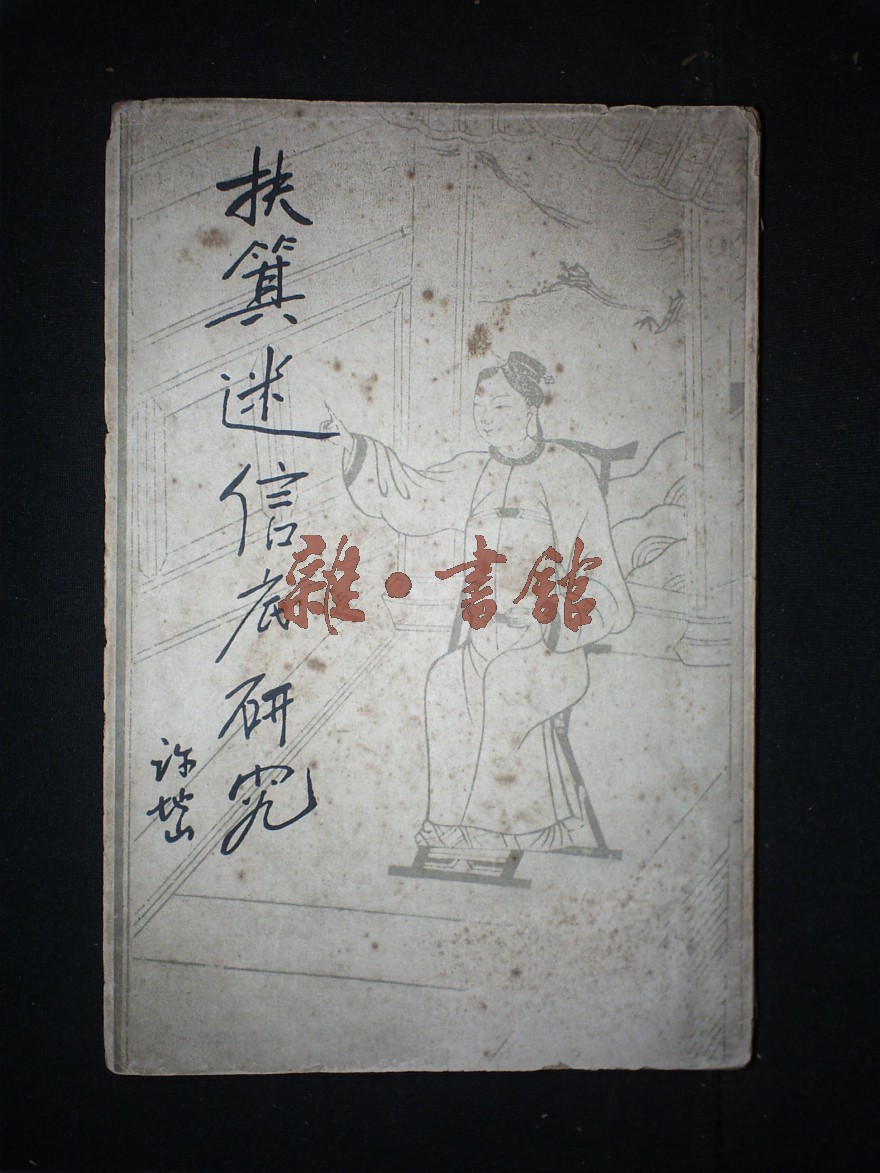 扶箕迷信底研究
許地山
雜·書館